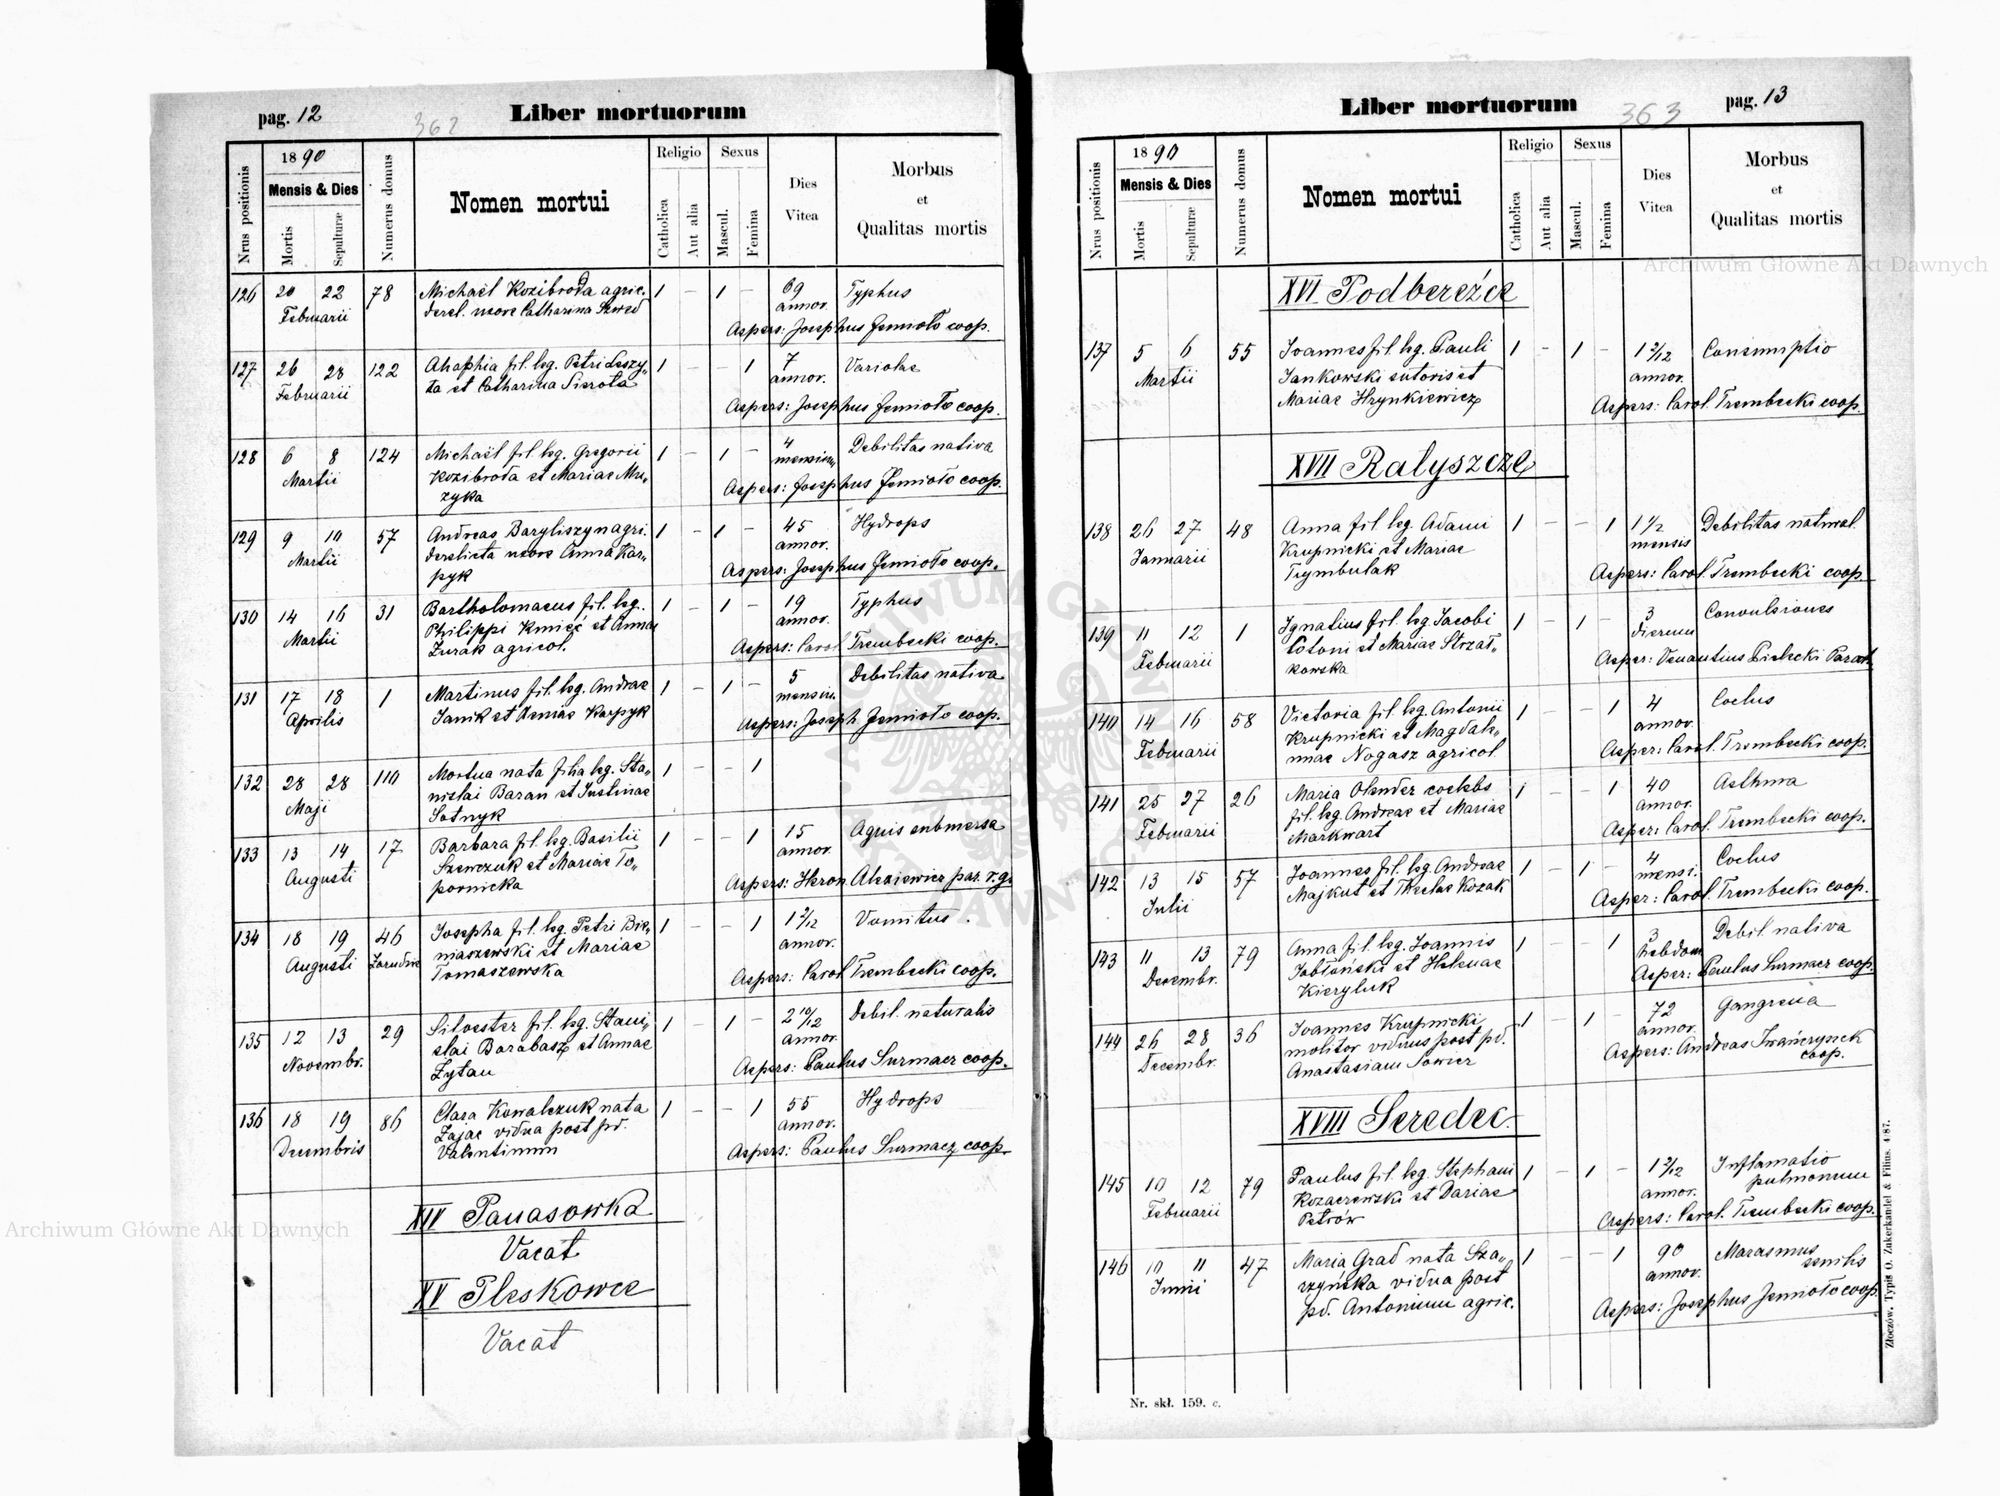 pag. 12
362
Liber mortuorum
Nrus positionis
1890
Mensis & Dies
Mortis
Sepulturæ
Numerus domus
Nomen mortui
Religio
Catholica
Aut alia
Sexus
Mascul.
Femina
Dies
Vitea
Morbus
et
Qualitas mortis
126 20 22 78 Michaël Kozibroda agric. 1 – 1 – 69 Typhus
Februarii derel. uxore Catharina Szwed annor.
Aspers: Josephus Jemioło coop.
127 26 28 122 Ahaphia fil. leg. Petri Leszy„ 1 – – 1 7 Variolae
Februarii ta et Catharina Sierota annor.
Aspers: Josephus Jemioło coop.
128 6 8 124 Michaël fil. leg. Gregorii 1 – 1 – 4 Debilitas nativa
Martii Kozibroda et Mariae Mu„ mensium
zyka
Aspers: Josephus Jemioło coop.
129 9 10 57 Andreas Baryliszyn agri. 1 – 1 – 45 Hydrops
Martii derelicta uxore Anna Kar„ annor.
pyk
Aspers: Josephus Jemioło coop.
130 14 16 31 Bartholomaeus fil. leg. 1 – 1 – 19 Typhus
Martii Philippi Kmieć et Annae annor.
Żurak agricol.
Aspers: Carol Trembecki coop.
131 17 18 1 Martinus fil. leg. Andreae 1 – 1 – 5 Debilitas nativa
Aprilis Janik et Annae Karpyk mensiu.
Aspers: Joseph Jemioło coop.
132 28 28 110 Mortua nata filia leg. Sta„ 1 – – 1
Maji nislai Baran et Justinae
Sotnyk
133 13 14 17 Barbara fil. leg. Basilii 1 – – 1 15 Aquis submersa
Augusti Szewczuk et Mariae To„ annor.
pornicka
Aspers: Hieron Alexiewicz par. r. g.
134 18 19 46 Josepha fil. leg. Petri Bie„ 1 – – 1 1 2/12 Vomitus.
Augusti Zarudzie maszewski et Mariae annor.
Tomaszewska
Aspers: Carol Trembecki coop.
135 12 13 29 Silvester fil. leg. Stani„ 1 – 1 – 2 10/12 Debil. naturalis
Novembr. slai Barabasz et Annae annor.
Zytan
Aspers: Paulus Surmacz coop.
136 18 19 86 Clara Kowalczuk nata 1 – – 1 55 Hydrops
Decembris Zając vidua post pd. annor.
Valentinum
Aspers: Paulus Surmacz coop.
XIV Panasowka
Vacat
XV Pleskowce
Vacat
pag. 13
363
Liber mortuorum
Nrus positionis
1890
Mensis & Dies
Mortis
Sepulturæ
Numerus domus
Nomen mortui
Religio
Catholica
Aut alia
Sexus
Mascul.
Femina
Dies
Vitea
Morbus
et
Qualitas mortis
XVI Podbereźce
137 5 6 55 Joannes fil. leg. Pauli 1 – 1 – 1 2/12 Consumptio
Martii Jankowski sutoris et annor.
Mariae Hrynkiewicz
Aspers: Carol. Trembecki coop.
XVII Ralyszcze
138 26 27 48 Anna fil. leg. Adami 1 – – 1 1 1/2 Debilitas natural.
Januarii Krupnicki et Mariae mensis
Trymbulak
Aspers: Carol. Trembecki coop
139 11 12 1 Ignatius fil. leg. Jacobi 1 – 1 – 3 Convulsiones
Februarii et Mariae Strzał„ dierum
kowska
Asper: Venantius Bielecki Paroch.
140 14 16 58 Victoria fil. leg. Antonii 1 – – 1 4
Februarii Krupnicki et Magdale„ annor.
nae Nogasz agricol.
Asper: Carol. Trembecki coop.
141 25 27 26 Maria Olender coelebs 1 – – 1 40 Asthma
Februarii fil. leg. Andreae et Mariae annor.
Markwart
Asper: Carol. Trembecki coop.
142 13 15 57 Joannes fil. leg. Andreae 1 – 1 – 4
Julii Majkut et Theclae Kozak mensi.
Asper: Carol. Trembecki coop.
143 11 13 79 Anna fil. leg. Joannis 1 – – 1 3 Debil nativa
Decembr. Jabłoński et Helenae hebdom
Kieryluk
Asper: Paulus Surmacz coop.
144 26 28 36 Joannes Krupnicki 1 – 1 – 72 Gangrena
Decembr. molitor viduus post pd. annor.
Anastasiam Sowicz
Aspers: Andreas Iwańczyszek
coop.
XVIII Seredec.
145 10 12 79 Paulus fil. leg. Stephani 1 – 1 – 1 2/12 Inflamatio
Februarii Kozaczewski et Dariae annor. pulmonum
Petrów
Aspers: Carol. Trembecki coop.
146 10 11 47 Maria Grad nata Sza„ 1 – – 1 90 Marasmus
Junii rzyńska vidua post annor. senilis
pd. Antonium agric.
Aspers: Josephus Jemioło coop.
Nr. skł. 159. c.
Złoczów. Typis O. Zukerkandel & Filius. 4/87.
Archiwum Główne Akt Dawnych
Archiwum Główne Akt Dawnych
ARCHIWUM GŁÓWNE AKT DAWNYCH